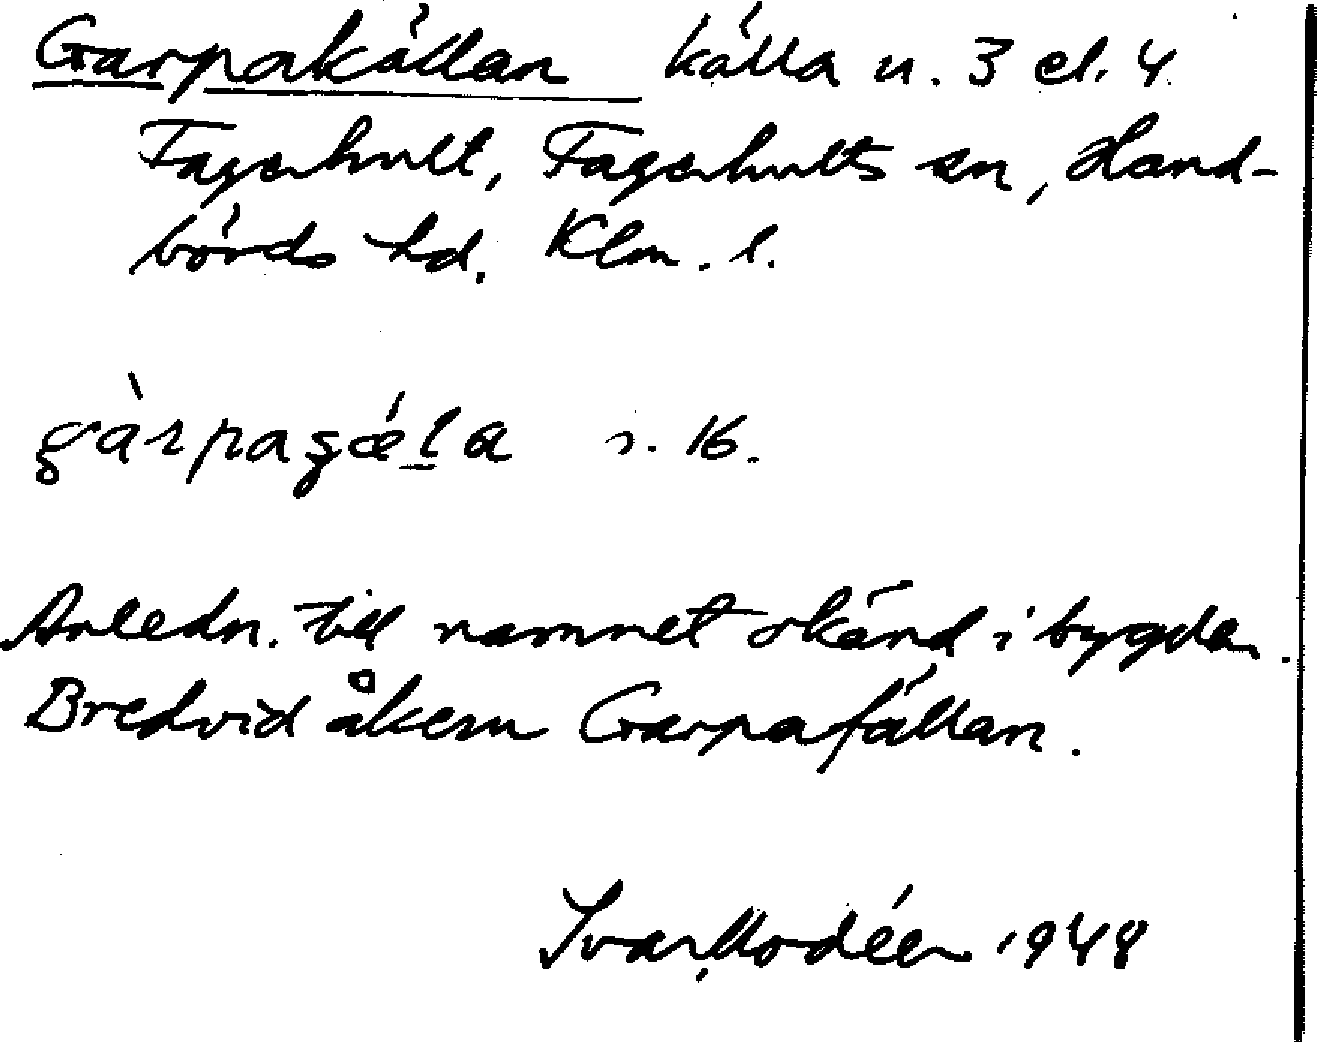 Garpakällan källa u. 3 el. 4
Fagerhult, Fagerhults sn, Hand-
börds hd. Klm. l.
gàrpaʂǽla s. 16.
Anledn. till namnet okänd i bygden.
Bredvid åkern Garpafällan.
Ivar Modéer 1948